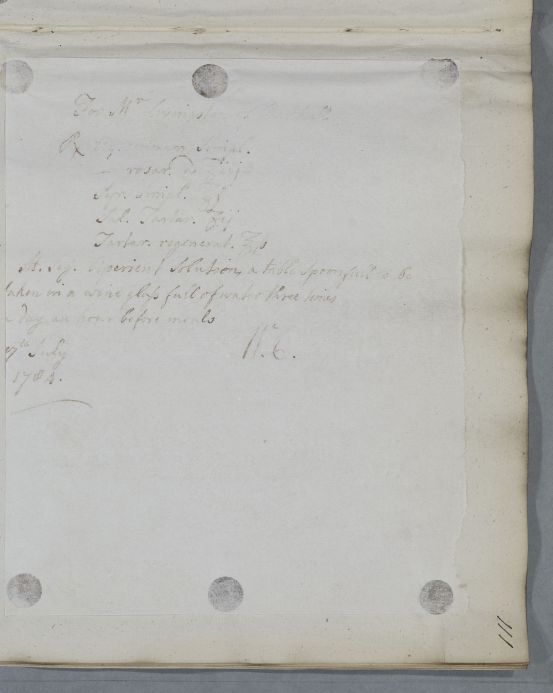 For Mr
℞ Aq. cinnam. simpl.
— rosar. a ℥iij
Syr. simpl. ℥j
Sal. Tartar. ʒij
Tartar. regenerat. ℥ſs
M. Sig. Aperient Solution, a table spoonfull to be
taken in a wine glaſs full of water three times
a day an hour before meals
July
1784.
W. C.
111